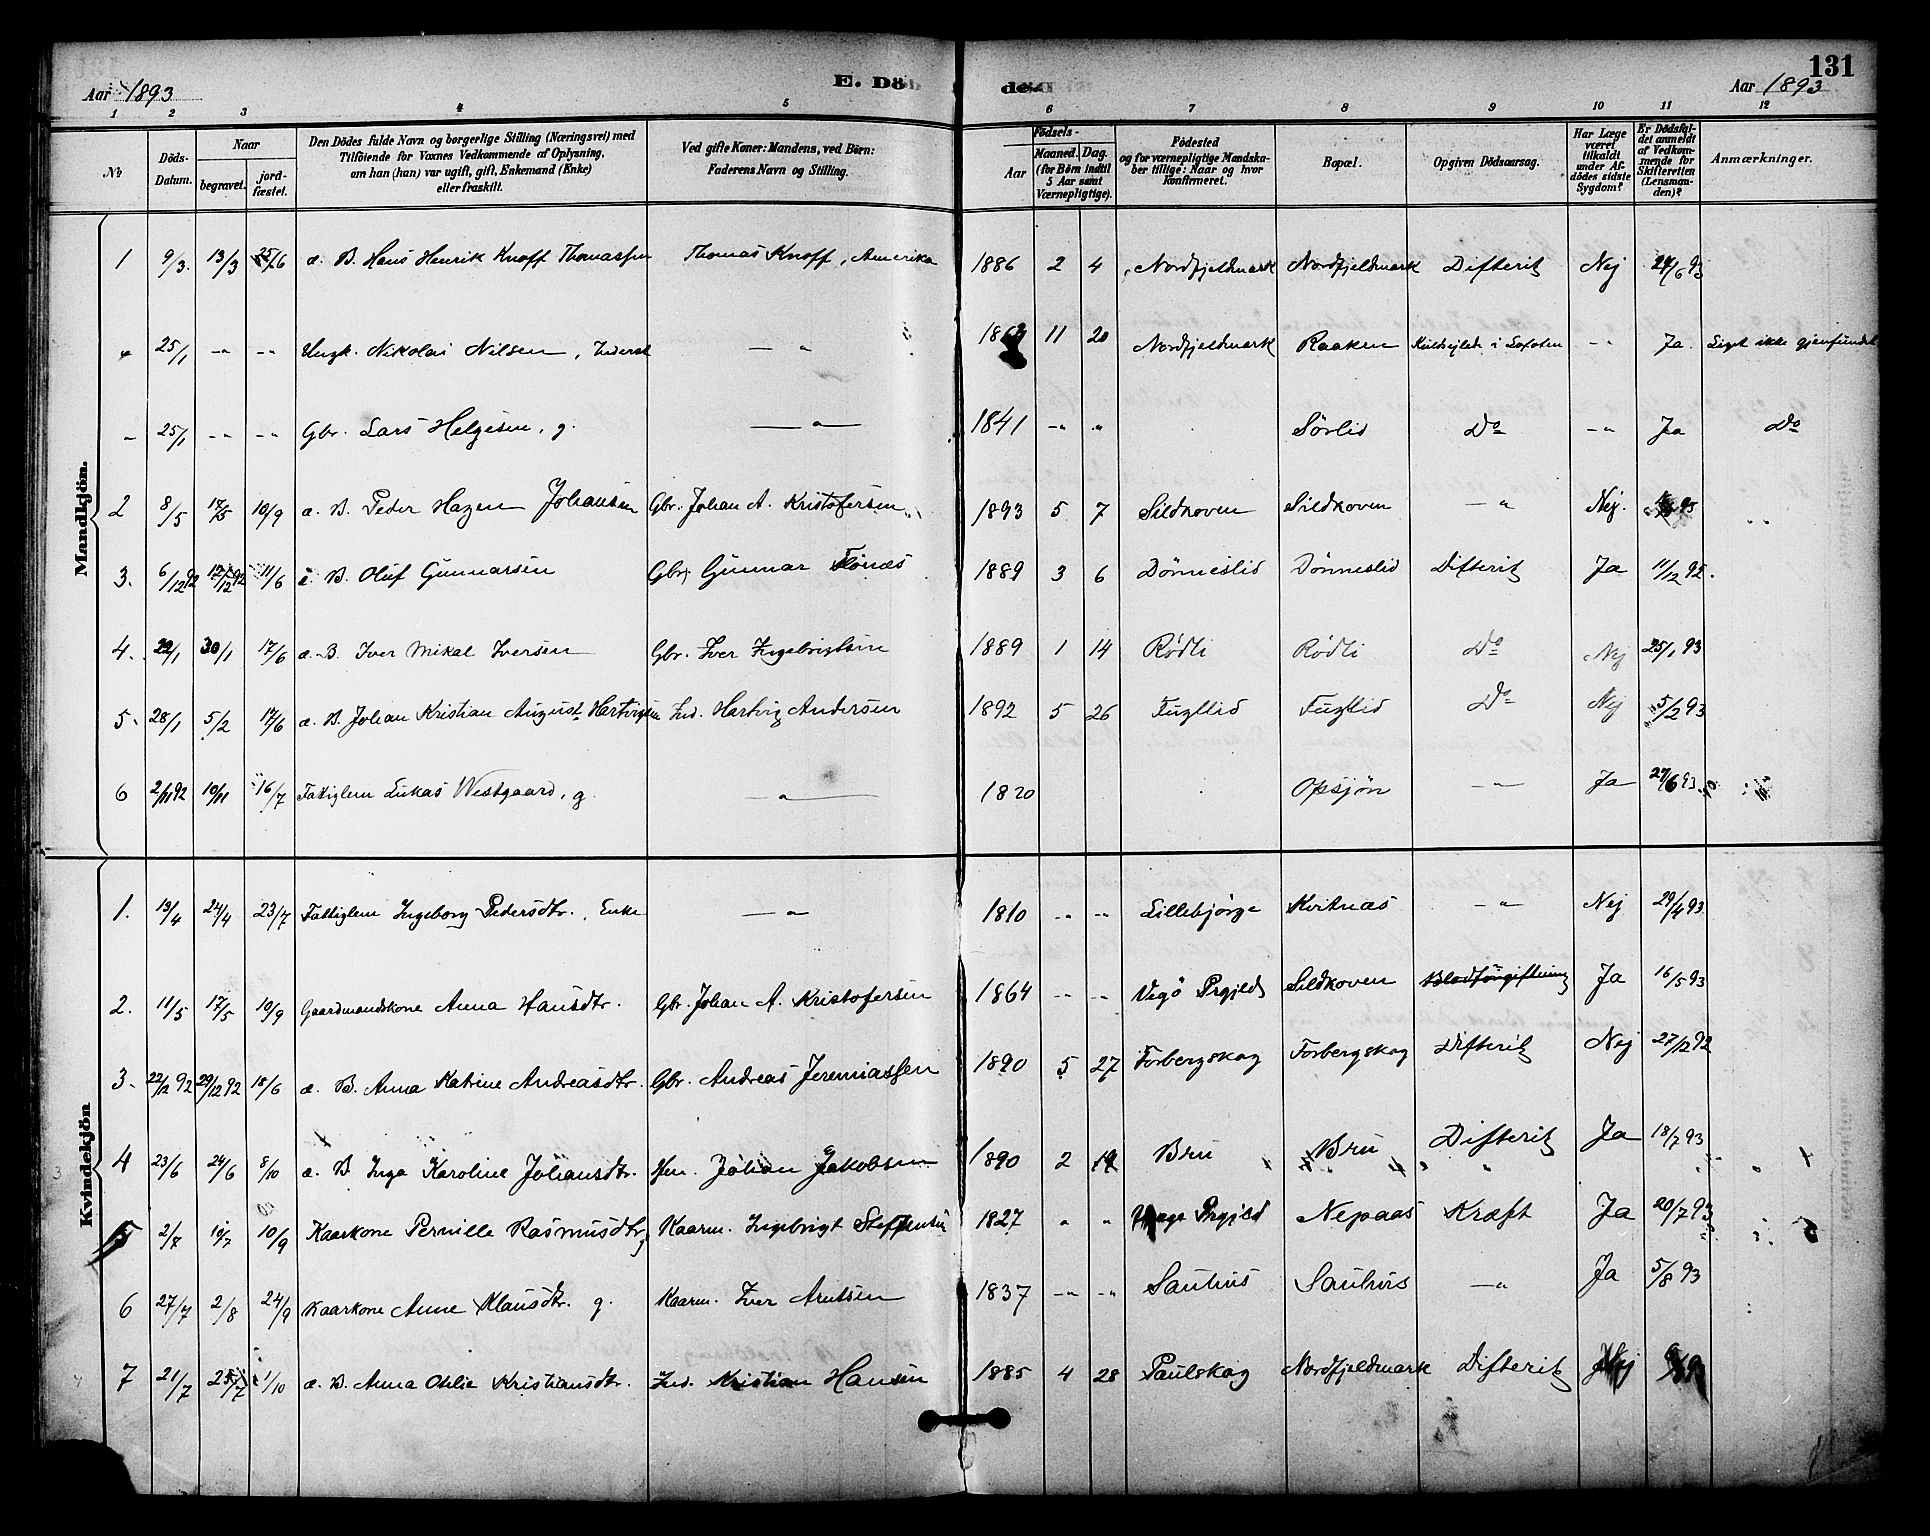 131
Aar 1893
E. Döde.
Aar 1893
1 2 3 4 5 6 7 8 9 10 11 12
No
Döds-Datum.
Naar
begravet.
jordfæstet.
Den Dödes fulde Navn og borgerlige Stilling (Næringsvei) med
Tilföiende for Voxnes Vedkommende af Oplysning,
om han (hun) var ugift, gift, Enkemand (Enke)
eller fraskilt.
Ved gifte Koner: Mandens, ved Börn:
Faderens Navn og Stilling.
Födsels-
Aar
Maaned. Dag.
(for Börn indtil
5 Aar samt
Værnepligtige).
Födested
og for værnepligtige Mandskaber tillige: Naar og hvor
Konfirmeret.
Bopæl.
Opgiven Dödsaarsag.
Har Læge været tilkaldt under Afdödes sidste Sygdom?
Er Dödsfaldet anmeldt af Vedkommende for Skifteretten (Lensmanden)?
Anmærkninger.
Mandkjön.
1 9/3 13/3 25/6 æ. B. Hans Henrik Knoff Thomassen Thomas Knoff, Amerika 1886 2 4 Nordfjeldmark Nordfjeldmark Difterit Nej 24/6 93
25/1 -"- -"- Ungk. Nikolai Nilsen, Inderst -"- 11 20 Nordfjeldmark Raaken Kuldsejlede i Lofoten -"- Ja Liget ikke gjenfundet
25/1 -"- -"- Gbr. Lars Helgesen, g. -"- 1841 -"- " Sörlid Do -"- Ja Do
2 8/5 17/5 10/9 æ. B. Peder Hagen Johansen Gbr. Johan A. Kristofersen 1893 5 7 Sildkoven Sildkoven -"- Nej.
3. 6/12 92 12/12 92 11/6 B. Oluf Gunnarsen Gbr. Gunnar 1889 3 6 Dönneslid Dönneslid Difterit Ja 11/12 92.
4. 22/1 30/1 17/6 æ. B. Iver Mikal Iversen Gbr. Iver Ingebrigtsen 1889 1 14 Rødli Rødli Do Nej 25/1 93
5. 28/1 5/2 17/6 æ. B. Johan Kristian August Hartvigsen Ind. Hartvig Andersen 1892 5 26 Fugllid Fugllid Do Nej 5/2 93
6 2/11 92 10/11 16/7 Fattiglem Lukas Westgaard, g. -"- 1820 Opsjön -"- Ja 27/6 93
Kvindekjön
1. 19/4 24/4 23/7 Fattiglem Ingeborg Pedersdtr., Enke -"- 1810 -"- -"- Lillebjörge Kvitnæs -"- Nej 29/4 93
2. 11/5 17/5 10/9 Gaardmandskone Anna Hansdtr. Gbr. Johan A. Kristofersen 1864 -"- -"- Vegö Prgjeld Sildkoven Blodforgiftning Ja 16/5 93
3. 22/12 92 29/12 92 18/6 æ. B. Anna Katrine Andreasdtr. Gbr. Andreas Jeremiassen 1890 5 27 Forbergskog Forbergskog Difterit Nej 27/12 92
4 23/6 24/6 8/10 æ. B Inga Karoline Johansdtr. Johan Jakobsen 1890 2 19 Bru Bru Difterit Ja 18/7 93
5 2/7 10/7 10/9 Kaarkone Pernille Rasmusdtr. g Kaarm. Ingebrigt Steffensen 1827 " " Prgjeld Nepaas Kræft Ja 20/7 93
6 27/7 2/8 24/9 Kaarkone Anne Klausdtr. g. Kaarm. Iver Arntsen 1837 -"- -"- Sauhus Sauhus -"- Ja 5/8 93
7 21/7 25/7 1/10 æ. B. Anna Otelie Kristiansdtr. Ind. Kristian Hansen 1885 4 28 Paulskog Nordfjeldmark Difterit Nej